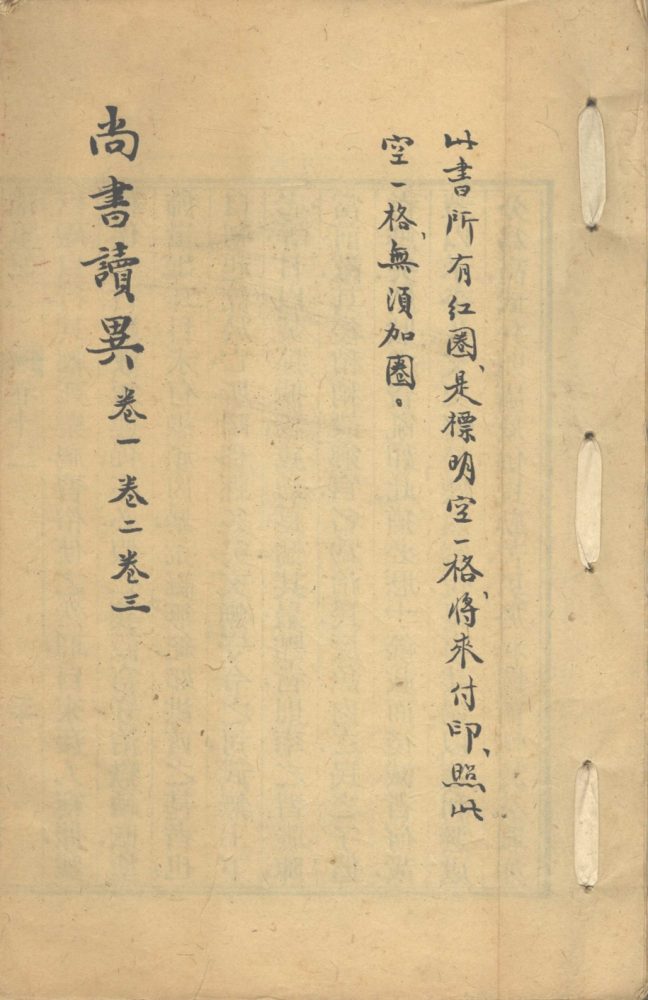 此書所有红圈、是標明空一格、將來付印、照此
空一格、無須加圈。
尚書讀異 卷一 卷二 卷三